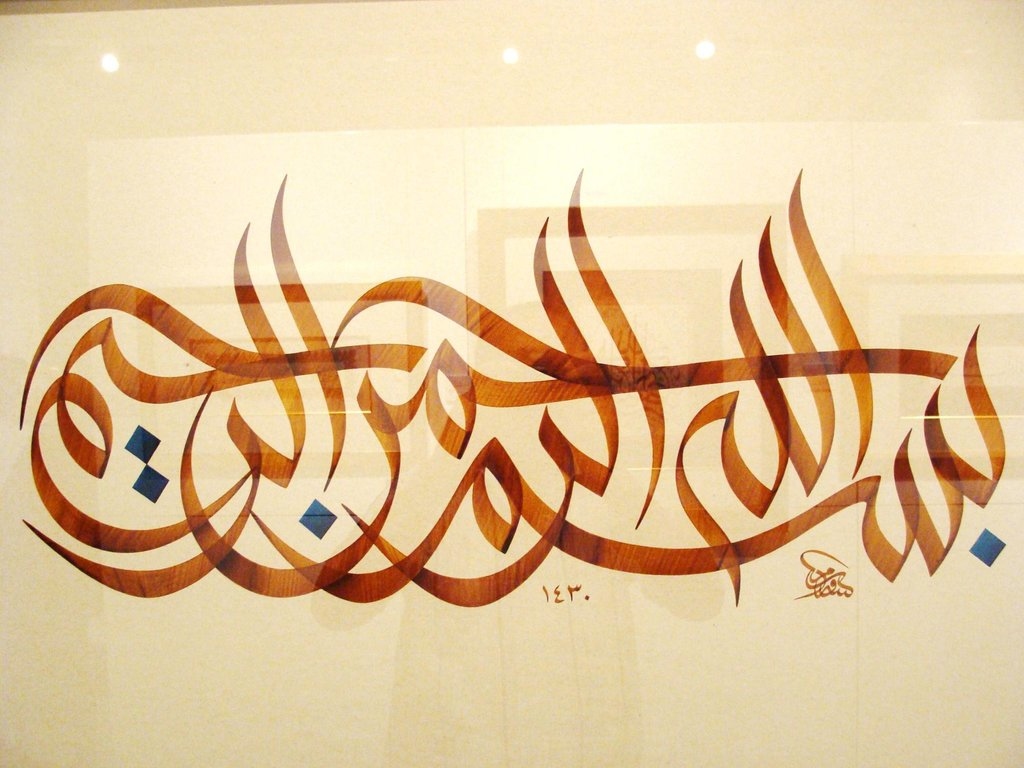 بسم الله الرحمن الرحيم
١٤٣٠